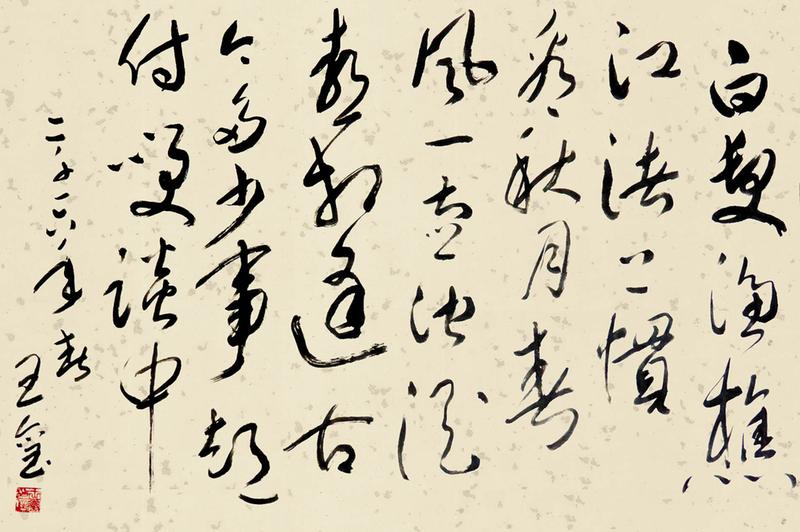 白髮渔樵
江渚上慣
看秋月春
风一壶浊酒
喜相逢古
今多少事都
付笑谈中
二六年春
王